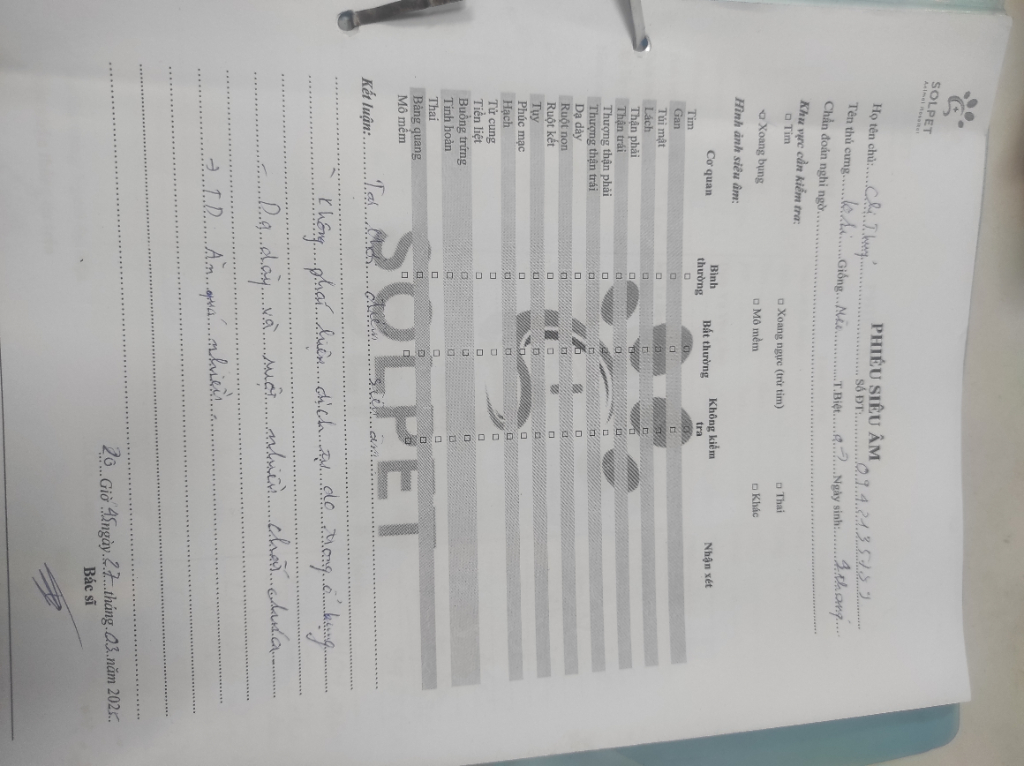 SOLPET
ANIMAL HOSPITAL
PHIẾU SIÊU ÂM
Họ tên chủ: Chị Số ĐT:
Tên thú cưng Giống T.Biệt Ngày sinh: tháng
Chẩn đoán nghi ngờ
Khu vực cần kiểm tra:
□ Tim □ Xoang ngực (trừ tim) □ Thai
Xoang bụng □ Mô mềm □ Khác
Hình ảnh siêu âm:
Cơ quan Bình thường Bất thường Không kiểm tra Nhận xét
Tim □ □ □
Gan □ □ □
Túi mật □ □ □
Lách □ □ □
Thận phải □ □ □
Thận trái □ □ □
Thượng thận phải □ □ □
Thượng thận trái □ □ □
Dạ dày □ □ □
Ruột non □ □ □
Ruột kết □ □ □
Tụy □ □ □
Phúc mạc □ □ □
Hạch □ □ □
Tử cung □ □ □
Tiền liệt □ □ □
Buồng trứng □ □ □
Tinh hoàn □ □ □
Thai □ □ □
Bàng quang □ □ □
Mô mềm □ □ □
SOLPET
Kết luận: Tại thời điểm siêu âm
- Không phát hiện dịch tự do trong ổ bụng
- Dạ dày và ruột nhiều chất chứa
→ TD: Ăn quá nhiều
20 Giờ 45 ngày 27 tháng 03 năm 2025.
Bác sĩ